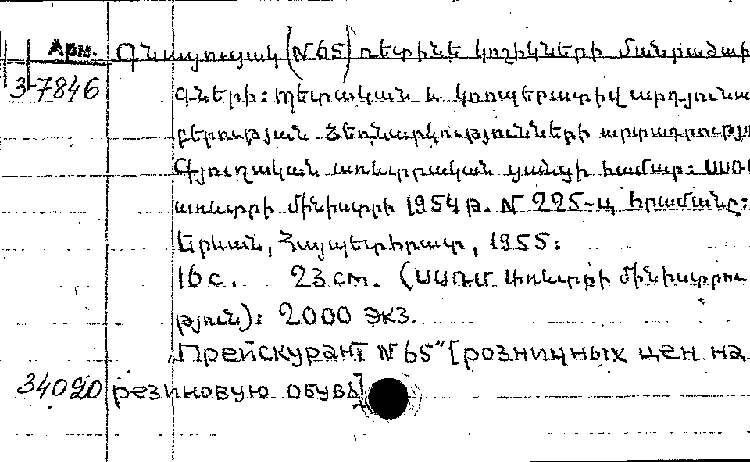 Арм. Գնացուցակ (N 65) ռետինե կոշիկների մանրածախ
3-7846 գների: Պետական և կոոպերատիվ արդյունա
բերության ձեռնարկությունների արտադրությ
Գյուղական առևտրական ցանցի համար: ՍՍՌՄ
առևտրի մինիստրի 1954 թ. N 225-ց հրամանը:
Երևան, Հայպետհրատ, 1955:
16 с. 23 см. (ՍՍՌՄ Առևտրի մինիստրու
թյուն): 2000 экз.
"Прейскурант N 65" [розничных цен на
34020 резиновую обувь]